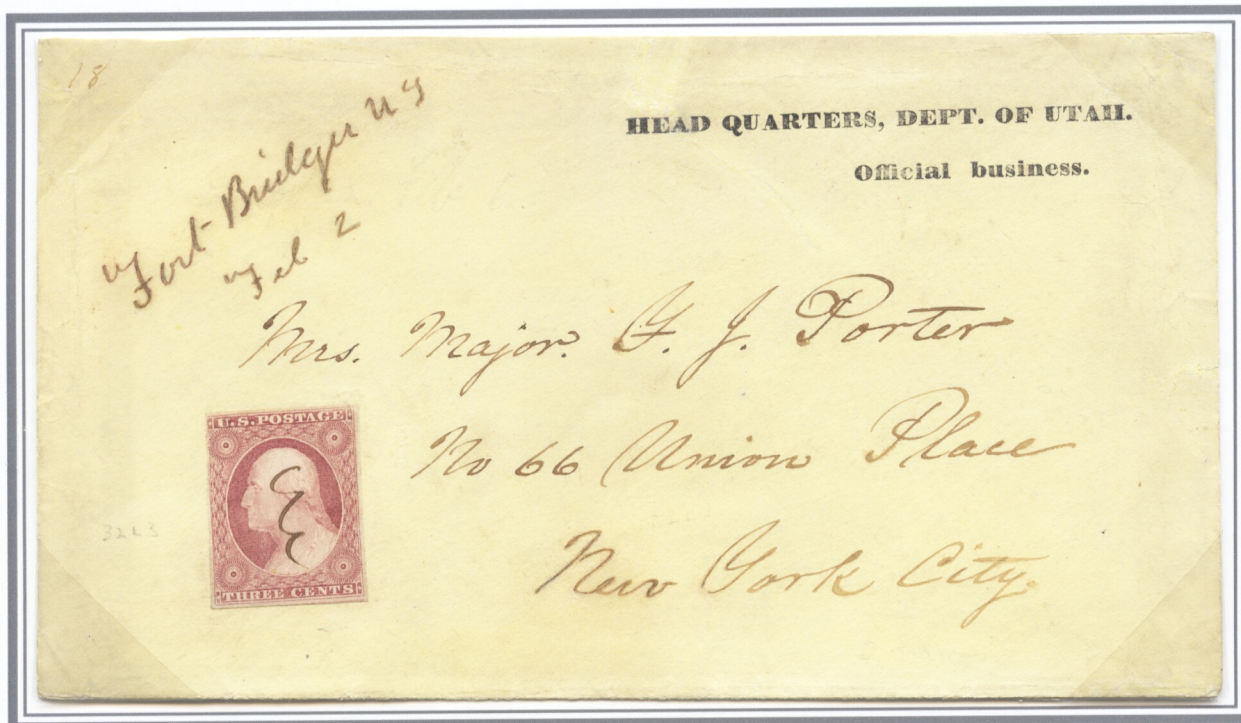 18
Fort Bridger U T
Feb 2
HEAD QUARTERS, DEPT. OF UTAH.
Official business.
Mrs. Major. F. J. Porter
No 66 Union Place
New York City.
U.S. POSTAGE
THREE CENTS